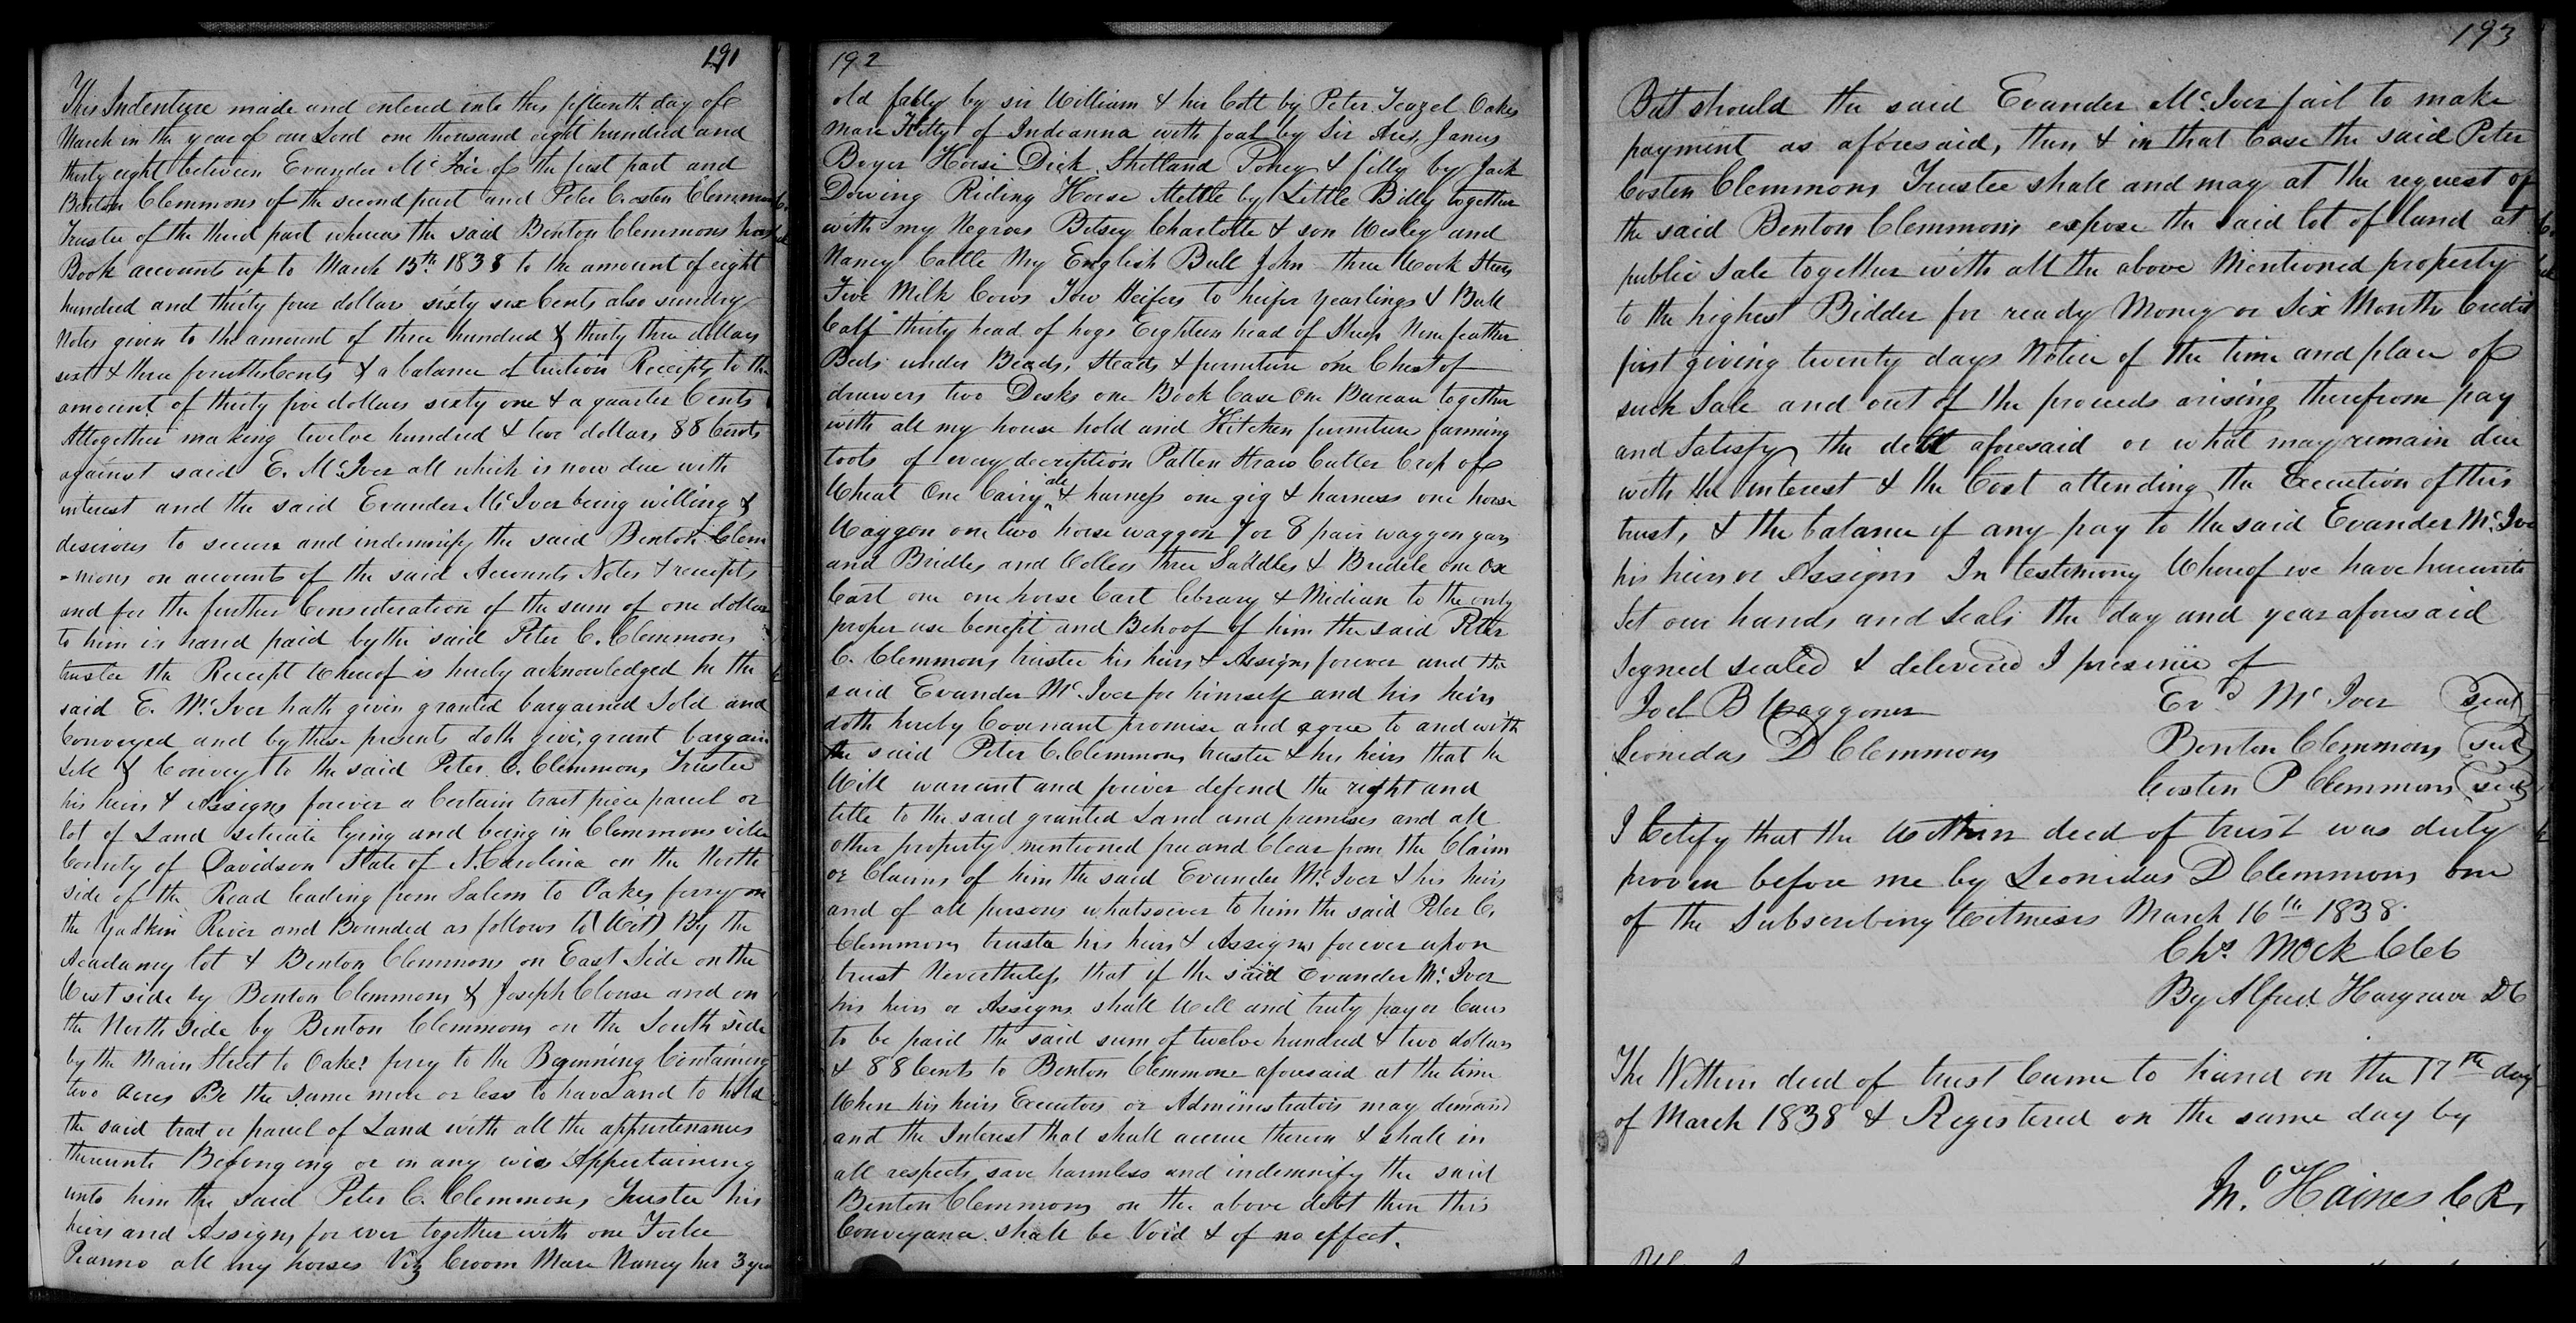 191
This Indenture made and entered into this fifteenth day of
March in the year of our Lord one thousand eight hundred and
thirty eight between Evander Mc Iver of the first part and
Benton Clemmons of the second part and Peter Costen Clemmons
Trustee of the third part whereas the said Benton Clemmons has
Book accounts up to March 15th 1838 to the amount of eight
hundred and thirty four dollars sixty six Cents also sundry
Notes given to the amount of three hundred & thirty three dollars
sixt & three fourths Cents & a balance of tuition Receipts to the
amount of thirty five dollars sixty one & a quarter Cents
Altogether making twelve hundred & two dollars 88 Cents
against said E. McIver all which is now due with
interest and the said Evander McIver being willing &
desirous to secure and indemnify the said Benton Clem
-mons on accounts of the said Accounts Notes & receipts
and for the further Consideration of the sum of one dollar
to him in hand paid by the said Peter C. Clemmons
trustee the Receipt Whereof is hereby acknowledged he the
said E. Mc.Iver hath given granted bargained Sold and
Conveyed and by these presents doth give, grant bargain
Sell & Convey to the said Peter C. Clemmons Trustee
his heirs & Assigns forever a Certain tract piece parcel or
lot of Land setuate lying and being in Clemmonsville
County of Davidson State of N. Carolina on the North
side of the Road leading from Salem to Oakes ferry on
the Yadkin River and Bounded as follows to (Wit) By the
Acadamy lot & Benton Clemmons on East Side on the
West side by Benton Clemmons & Joseph Clouse and on
the North side by Benton Clemmons on the South side
by the Main Street to Oakes ferry to the Beginning Containing
two acres Be the same more or less to have and to hold
the said tract or parcel of Land with all the appurtenances
thereunto Belonging or in any wise Appertaining
unto him the said Peter C. Clemmons Trustee his
heirs and Assigns for ever together with one Forte
Peanno all my horses Viz Croom Mare Nancy her 3 year
192
old fally by sir William & her Colt by Peter Teazel Oakes
mare Kitty of Indeanna with foal by Sir Ares, James
Boyer Horse Dick Shetland Poney & filly by Jack
Dowing Riding Horse Mettle by Little Billy together
with my Negroes Betsey Charlotte & son Wesley and
Nancy Cattle My English Bull John three Work Steers
Five Milk Cows Tow Heifers to heifer yearlings & Bull
Calf thirty head of hogs Eighteen head of Sheep Nine feather
Beds under Beads, Steads & furniture one Chest of
drawers two Desks one Book Case One Bureau together
with all my house hold and Kitchen furniture farming
tools of every decription Patten Straw Cutter Crop of
Wheat One Cairy ale & harness one gig & harness one horse
Waggon one two horse waggon 7 or 8 pair waggon gears
and Bridles and Collers three Saddles & Bridele one Ox
Cart one one horse Cart library & Midian to the only
proper use benefit and Behoof of him the said Peter
C. Clemmons trustee his heirs & Assigns forever and the
said Evander Mc.Iver for himself and his heirs
doth hereby Covenant promise and agree to and with
the said Peter C. Clemmons trustee & his heirs that he
Will warrant and forever defend the right and
title to the said granted Land and premises and all
other property mentioned free and Clear from the Claim
or Claims of him the said Evander Mc.Iver & his heirs
and of all persons whatsoever to him the said Peter C.
Clemmons trustee his heirs & Assigns forever upon
trust Nevertheless that if the said Evander Mc.Iver
his heirs or Assigns shall Well and truly pay or Caus
to be paid the said sum of twelve hundred & two dollars
& 88 Cents to Benton Clemmons aforesaid at the time
When his heirs Executors or Administrators may demand
and the Interest that shall accrue thereon & shall in
all respects save harmless and indemnify the said
Benton Clemmons on the above debt then this
Conveyance shall be Void & of no effect.
193
But should the said Evander Mc.Iver fail to make
payment as aforesaid, then & in that Case the said Peter
Costen Clemmons Trustee shall and may at the request of
the said Benton Clemmons expose the said lot of land at
public Sale together with all the above Mentioned property
to the highest Bidder for ready Money or Six Months Credit
first giving twenty days Notice of the time and place of
such Sale and out of the proceeds arising therefrom pay
and Satisfy the debt aforesaid or what may remain due
with the interest & the Cost attending the Execution of this
trust, & the balance if any pay to the said Evander Mc.Iver
his heirs or Assigns In testimony Whereof we have hereunto
Set our hands and Seals the day and year aforesaid
Segned sealed & delivered I presence of
Joel B Waggoner Evd Mc Iver (seal)
Leonidas D Clemmons Benton Clemmons (seal)
Costen P Clemmons (seal)
I Cetify that the Within deed of trust was duly
proven before me by Leonidas D Clemmons one
of the Subscribing Witnesses March 16th 1838.
Chs. Mock Clk
By Alfred Hargrave DC
The Within deed of trust Came to hand on the 17th day
of March 1838 & Registered on the same day by
Jno. Haines C R,